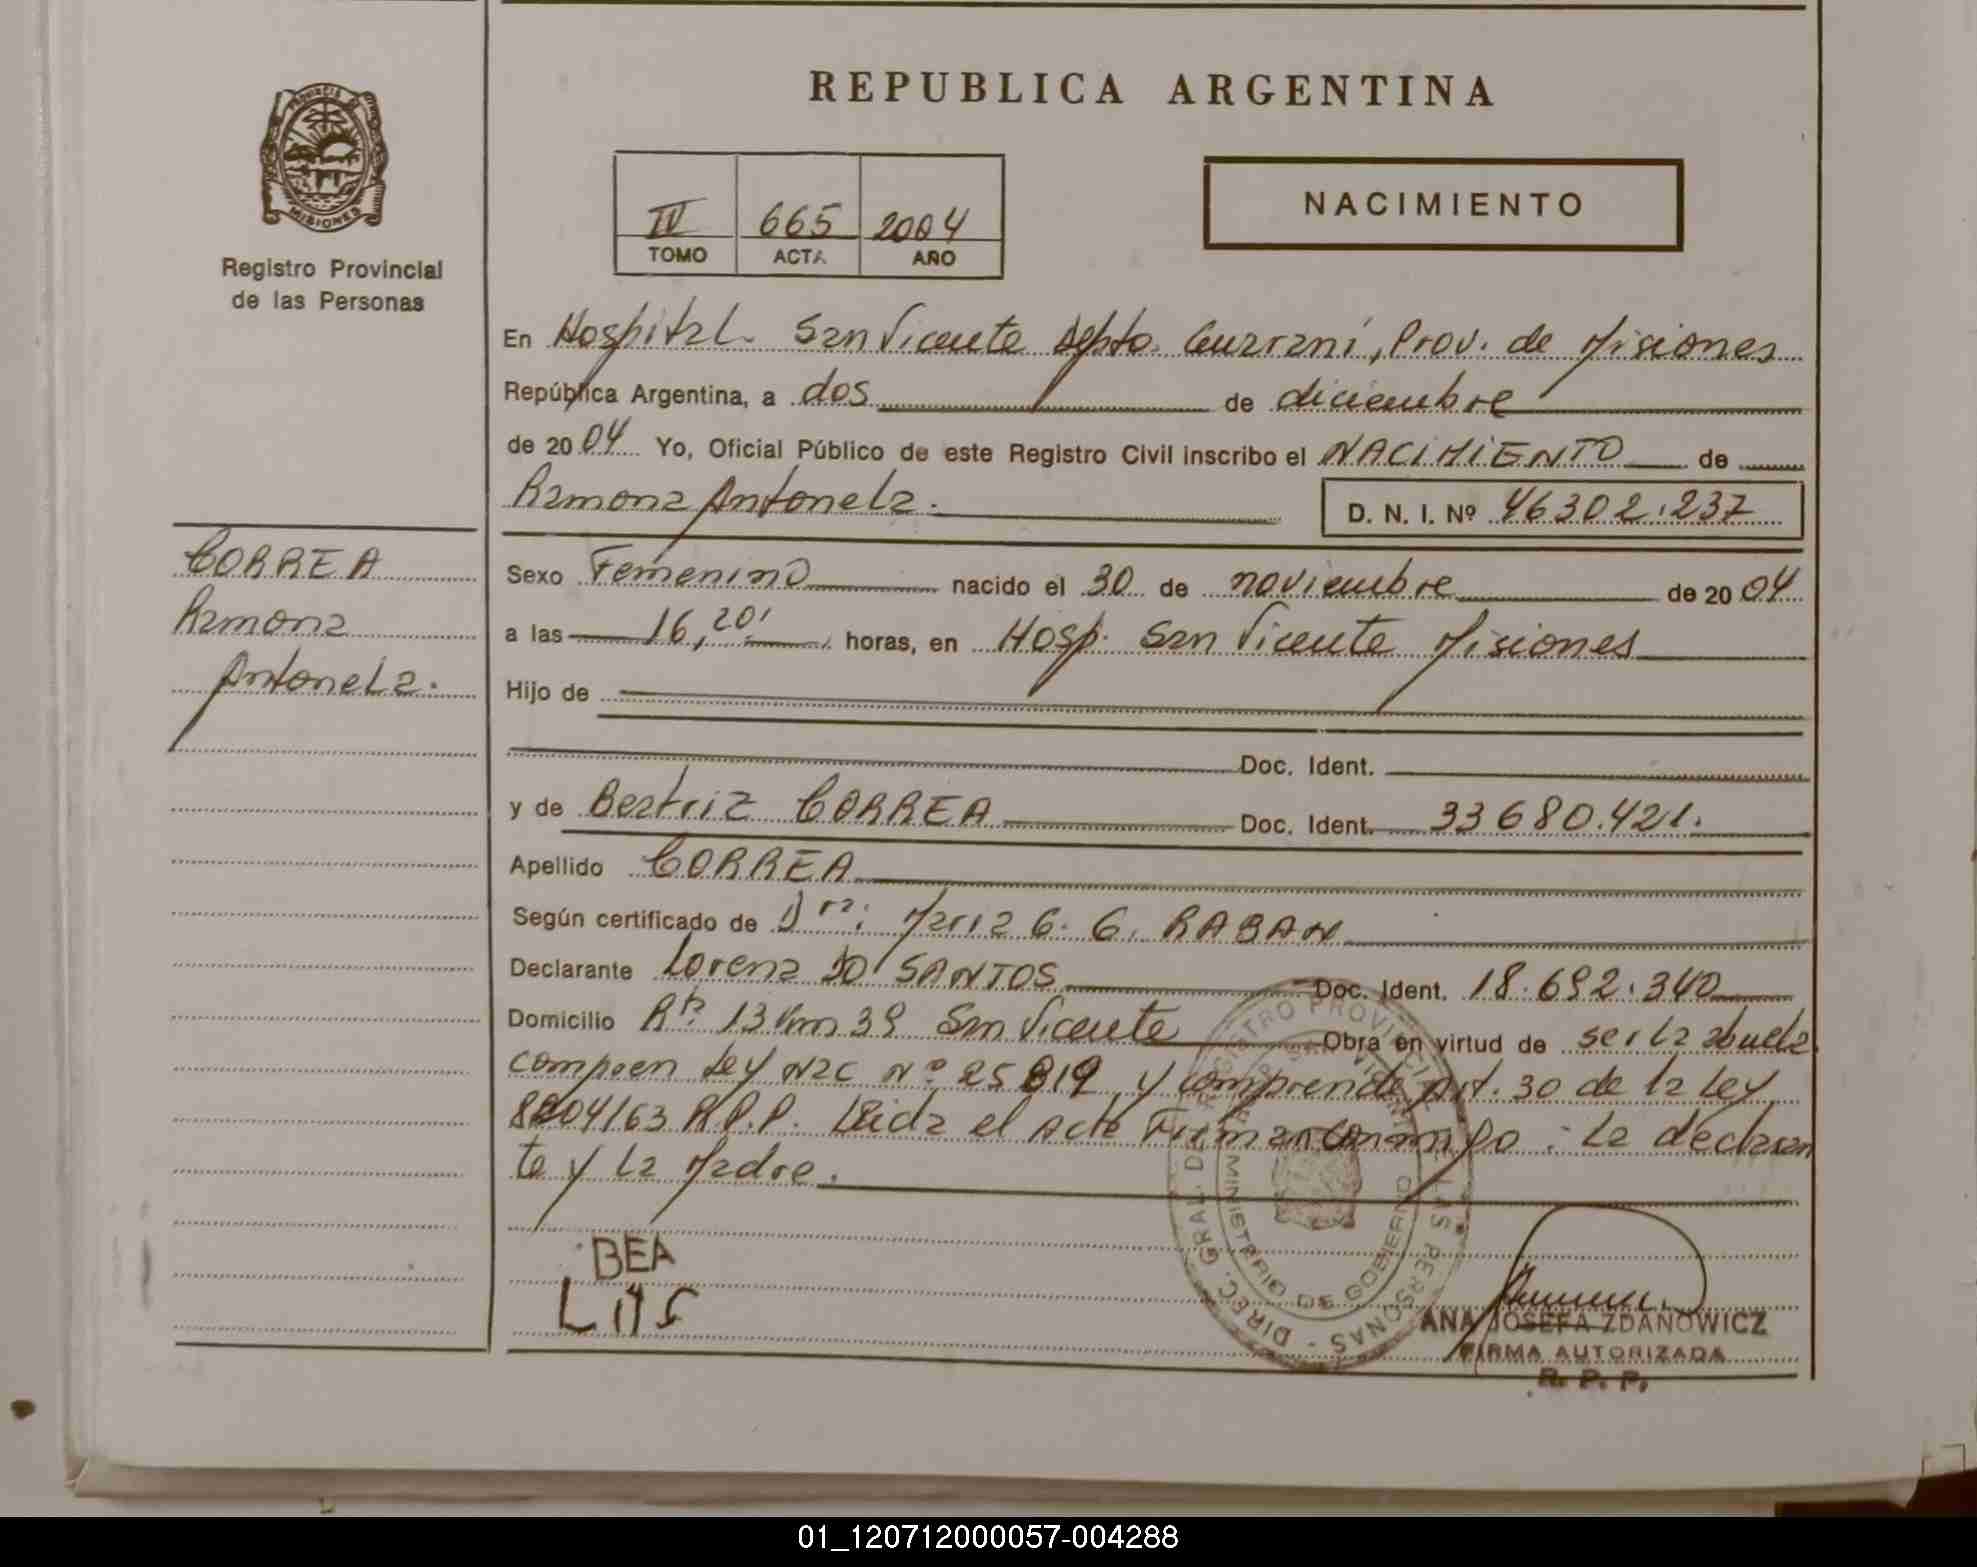 REPUBLICA ARGENTINA
PROVINCIA DE MISIONES
Registro Provincial
de las Personas
IV 665 2004
TOMO ACTA AÑO
NACIMIENTO
En Hospital San Vicente Depto. Guarani, Prov. de Misiones
República Argentina, a dos de diciembre
de 2004 Yo, Oficial Público de este Registro Civil inscribo el NACIMIENTO de
Ramona Antonela. D. N. I. Nº 46302.237
CORREA
Ramona
Antonela.
Sexo Femenino nacido el 30 de noviembre de 2004
a las 16,20' horas, en Hosp. San Vicente Misiones
Hijo de
Doc. Ident.
y de Beatriz CORREA Doc. Ident. 33680.421.
Apellido CORREA
Según certificado de Dra: Maria G. G. RABAN
Declarante Lorena DO SANTOS Doc. Ident. 18.692.340
Domicilio Rta 13 Km 39 San Vicente Obra en virtud de ser la abuela
Ley Nac Nº 25819 y comprende Art. 30 de la Ley
8204/63 R.P.P. Leida el Acta Firman conmigo: La declaran
te y la Madre.
BEA
DIREC. GRAL. DE REGISTRO PROVINCIAL DE LAS PERSONAS
MINISTERIO DE GOBIERNO
SAN VICENTE
ANA JOSEFA ZDANOWICZ
FIRMA AUTORIZADA
R. P. P.
01_120712000057-004288